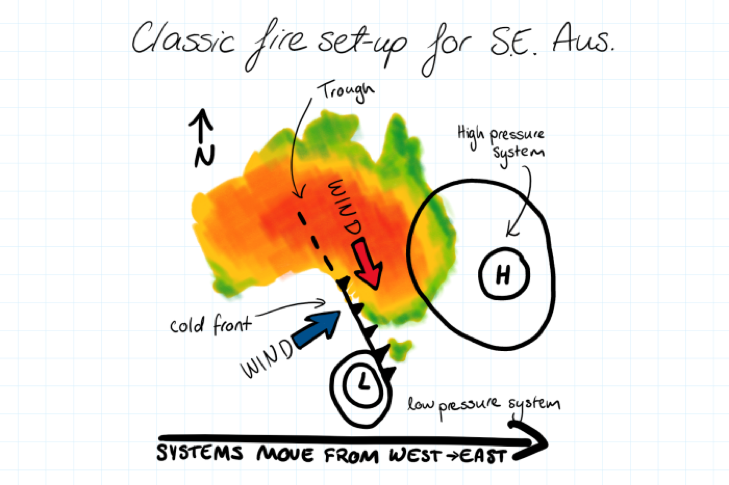 Classic fire set-up for S.E. Aus.
Trough
N
High pressure
system
WIND
H
cold front
WIND
L
low pressure system
SYSTEMS MOVE FROM WEST → EAST